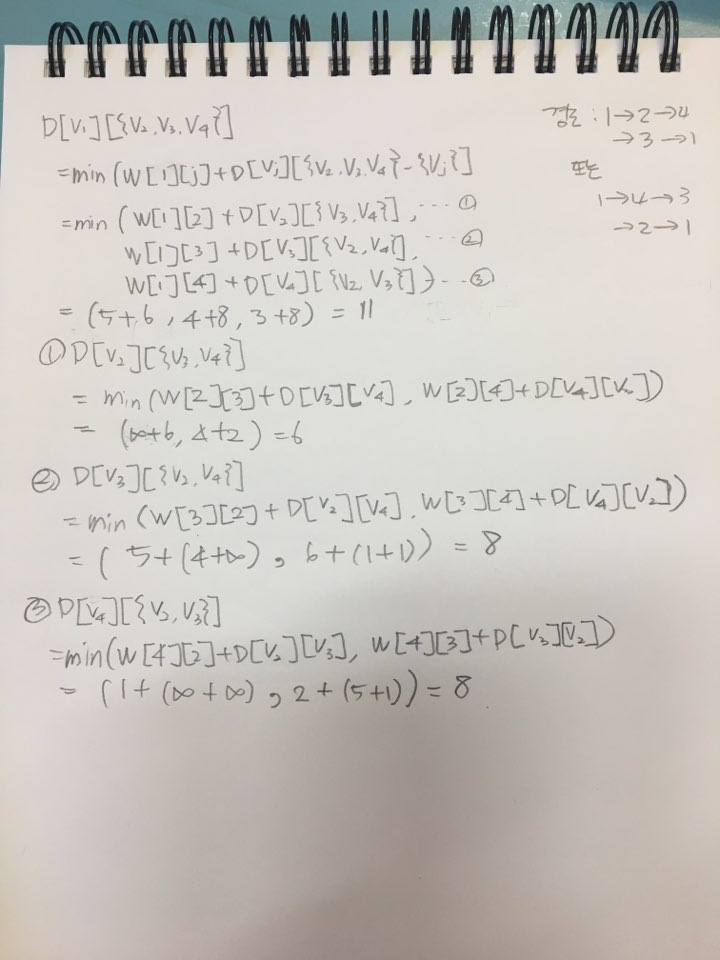 D[V₁][{V₂,V₃,V₄}]
=min(W[1][j]+D[Vj][{V₂,V₃,V₄}-{Vj}]
=min (W[1][2]+D[V₂][{V₃,V₄}], ---- ①
W[1][3]+D[V₃][{V₂,V₄}], ---- ②
W[1][4]+D[V₄][{V₂,V₃}])-- ③
= (5+6, 4+8, 3+8) = 11
경로 : 1→2→4
→3→1
또는
1→4→3
→2→1
① D[V₂][{V₃,V₄}]
= min(W[2][3]+D[V₃][V₄], W[2][4]+D[V₄][])
= (∞+6, 4+2) = 6
② D[V₃][{V₂,V₄}]
= min (W[3][2]+D[V₂][V₄], W[3][4]+D[V₄][V₂])
= ( 5+(4+∞), 6+(1+1)) = 8
③ D[V₄][{V₂,V₃}]
=min(W[4][2]+D[V₂][V₃], W[4][3]+D[V₃][V₂])
= (1+(∞+∞), 2+(5+1)) = 8